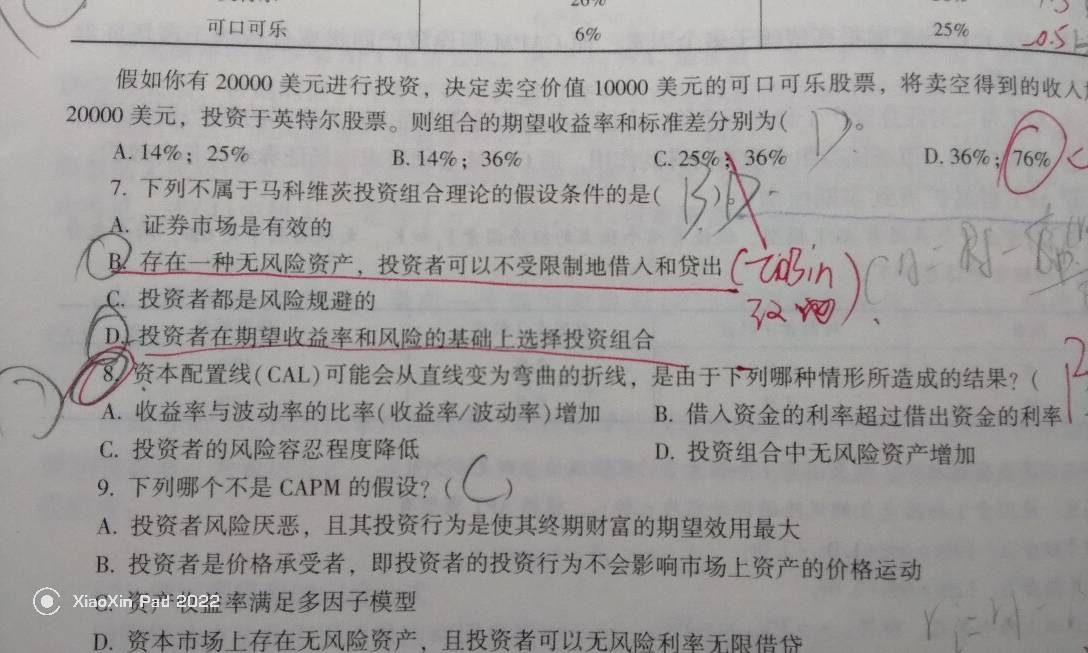 可口可乐 6% 25% -0.5
假如你有 20000 美元进行投资，决定卖空价值 10000 美元的可口可乐股票，将卖空得到的收入
20000 美元，投资于英特尔股票。则组合的期望收益率和标准差分别为( D )。
A. 14%；25% B. 14%；36% C. 25%；36% D. 36%；76%
7. 下列不属于马科维茨投资组合理论的假设条件的是( B
A. 证券市场是有效的
B. 存在一种无风险资产，投资者可以不受限制地借入和贷出 (Tobin
C. 投资者都是风险规避的
D. 投资者在期望收益率和风险的基础上选择投资组合
8. 资本配置线(CAL)可能会从直线变为弯曲的折线，是由于下列哪种情形所造成的结果？(
A. 收益率与波动率的比率(收益率/波动率)增加 B. 借入资金的利率超过借出资金的利率
C. 投资者的风险容忍程度降低 D. 投资组合中无风险资产增加
9. 下列哪个不是 CAPM 的假设？( C )
A. 投资者风险厌恶，且其投资行为是使其终期财富的期望效用最大
B. 投资者是价格承受者，即投资者的投资行为不会影响市场上资产的价格运动
C. 资产收益率满足多因子模型
XiaoXin Pad 2022
D. 资本市场上存在无风险资产，且投资者可以无风险利率无限借贷